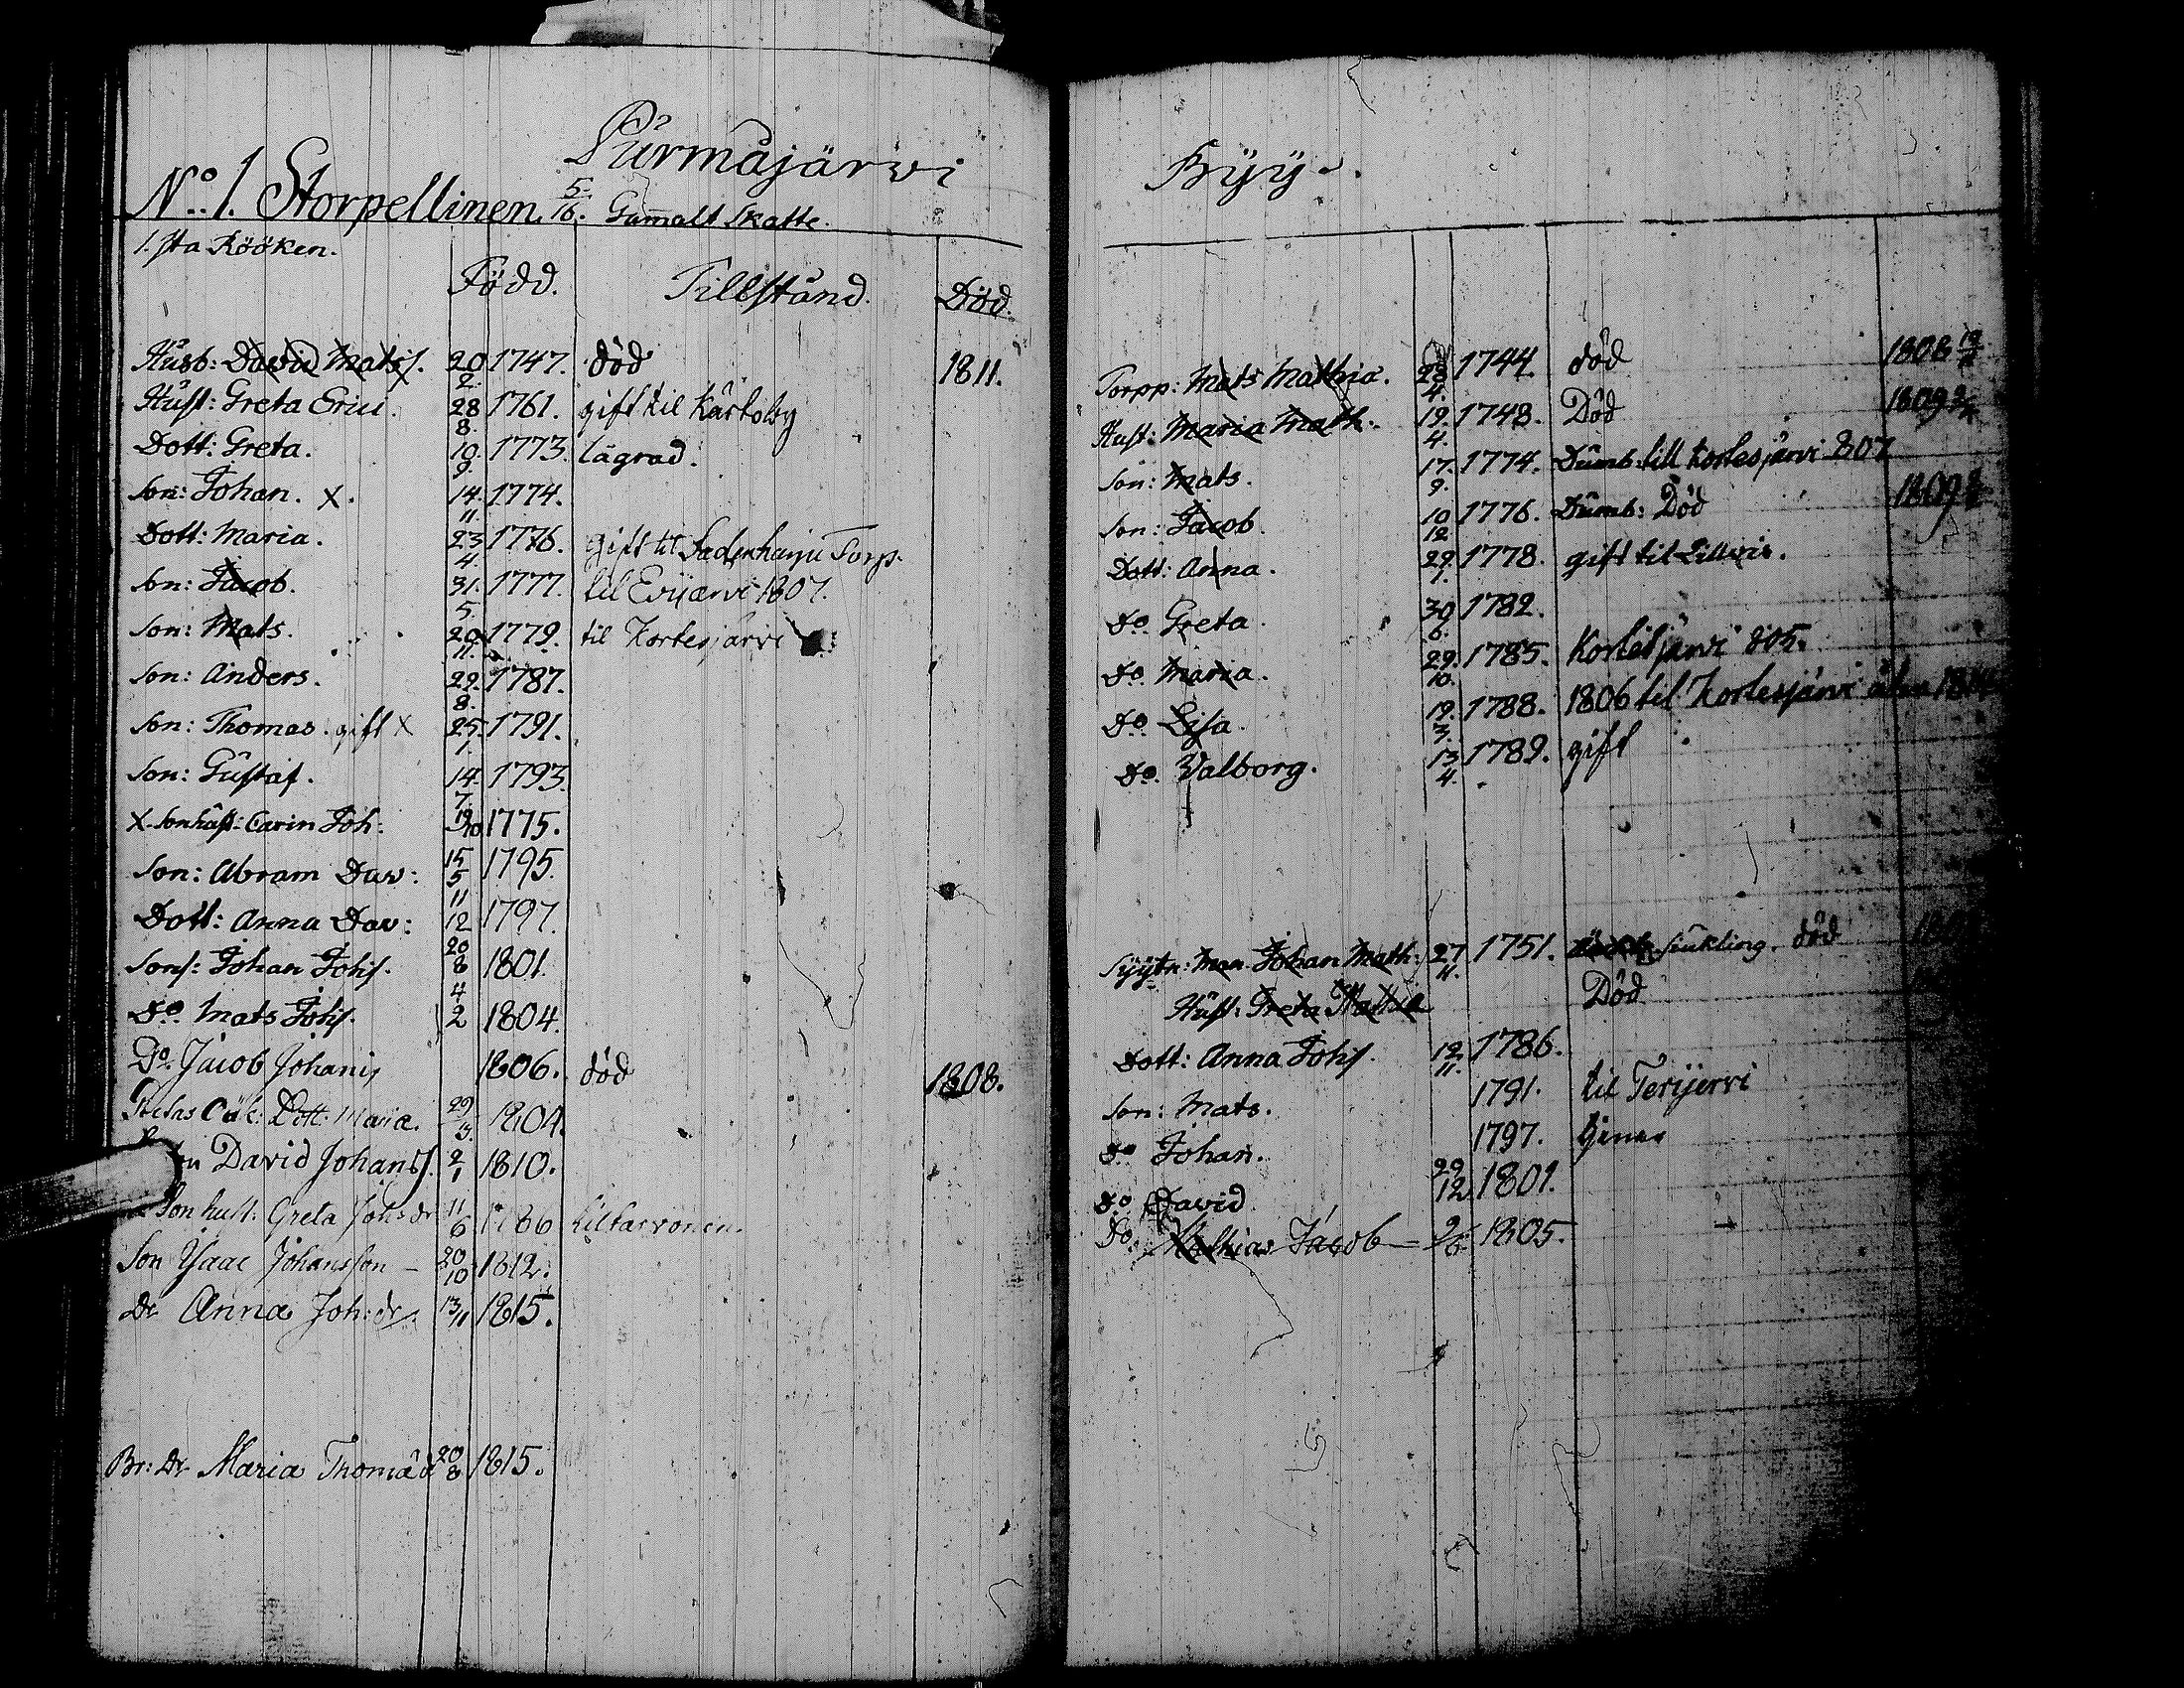 Purmåjärvi
N:o 1. Storpellinen. 5/16. Gamalt Skatte.
1.sta Rööken.
Född. Tillstånd. Död.
Husb: David Matss. 20 2. 1747. död 1811.
Hust: Greta Erici. 28 8. 1761. gift til Kårtoby
Dott: Greta. 10. 9. 1773. lägrad.
Son: Johan. X. 14. 11. 1774.
Dott: Maria. 23 4. 1776. gift til Sadenharju Torp.
Son: Jacob. 31. 5. 1777. til Evijærvi 1807.
Son: Mats. 20. 11. 1779. til Kortesjärvi
Son: Anders. 29. 8. 1787.
Son: Thomas. gift X 25. 1. 1791.
Son: Gustaf. 14. 7. 1793.
X. Sonhust: Carin Joh: 19 10 1775.
Son: Abram Dav: 15 5 1795.
Dott: Anna Dav: 11 12 1797.
Sons: Johan Johs. 20 8 1801.
Do. Mats Johs. 4 2 1804.
Do. Jacob Johans 1806. död 1808.
Gretas Dott: Maria. 29 3. 1804.
David Johanss. 2 1 1810.
Son hust: Greta Johsdr 11 6 1786
Son Ysaac Johansson – 20 10 1812.
Dr Anna Joh:dr. 13/11 1815.
Br: Dr Maria Thomæd 20 8 1815.
Byy.
Torpp: Mats Mathia. 28 4. 1744. död 1808
Hust: Maria Math. 19. 4. 1748. Död 1809
Son: Mats. 17. 9. 1774. Dumb: till Kortesjärvi 807
Son: Jacob. 10 12 1776. Dumb: Död 1809
Dott: Anna. 29. 1. 1778. gift til
Do. Greta. 30 6. 1782.
Do. Maria. 29. 10. 1785. Kortesjärvi 805.
Do. Lisa. 19. 3. 1788. 1806 til Kortesjärvi
Do. Valborg. 13 4. 1789. gift
Syytn: Man Johan Math: 27 4. 1751. siukling. död
Hust: Greta Död
Dott: Anna Johs. 12 11. 1786.
Son: Mats. 1791. til Terijervi
Do. Johan. 1797. tjenar
Do. David. 29 12. 1801.
Do. Mathias Jacob – 2/6. 1805.